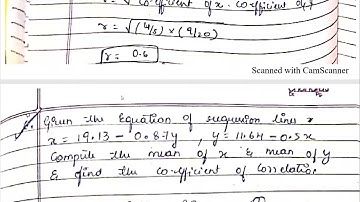 r = √ co-efficient of x. co-efficient of y
r = √(4/5) × (9/20)
r = 0.6
Scanned with CamScanner
Given the Equation of regression lines
x = 19.13 - 0.87y, y = 11.64 - 0.5x
Compute the mean of x & mean of y
& find the co-efficient of correlation